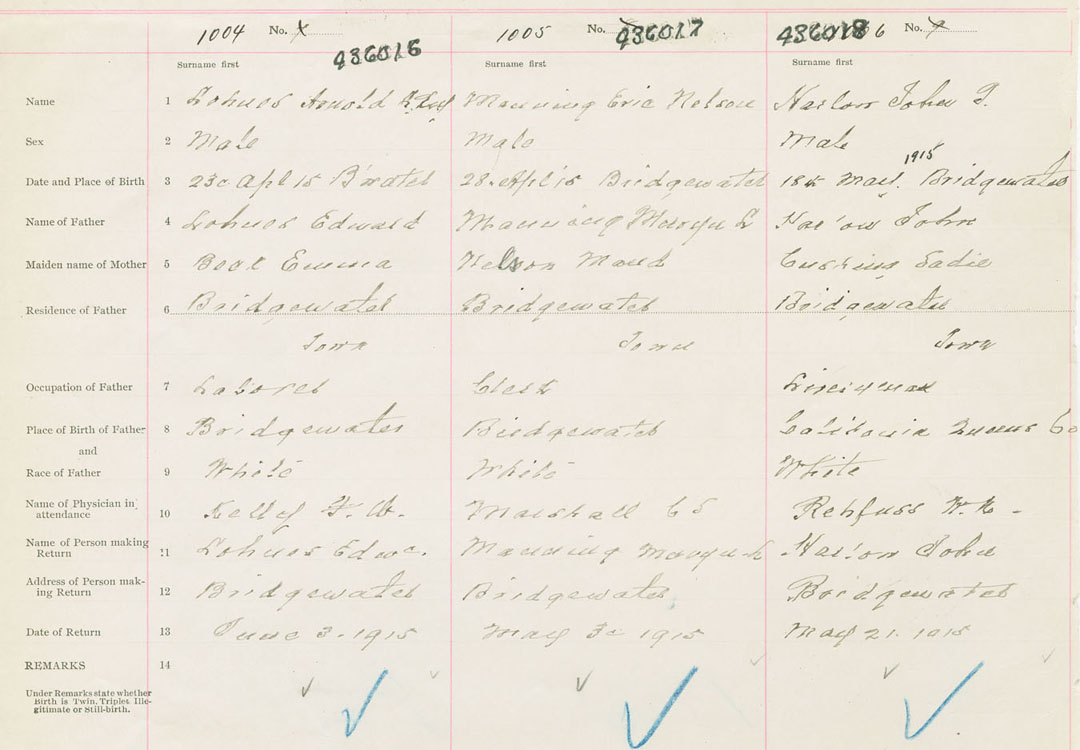 1004 No. 436016 1005 No. 436017 436018 No.
Surname first Surname first Surname first
Name 1 Lohnes Arnold Manning Eric Nelson Harlow John
Sex 2 Male Male Male
1915
Date and Place of Birth 3 23 Apl 15 B'water 28 Apl 15 Bridgewater 18th May. Bridgewater
Name of Father 4 Lohnes Edward Manning Harlow John
Maiden name of Mother 5 Emma Nelson Maud Cushing Sadie
Residence of Father 6 Bridgewater Bridgewater Bridgewater
Town Town Town
Occupation of Father 7 Laborer Clerk
Place of Birth of Father 8 Bridgewater Bridgewater Queens Co
and
Race of Father 9 White White White
Name of Physician in attendance 10 Kelley F. W. Marshall C S Rehfuss W. N.
Name of Person making Return 11 Lohnes Edw. Manning Harlow John
Address of Person mak-ing Return 12 Bridgewater Bridgewater Bridgewater
Date of Return 13 June 3. 1915 May 1915 May 21. 1915
REMARKS 14
Under Remarks state whether
Birth is Twin, Triplet, Ille-
gitimate or Still-birth.